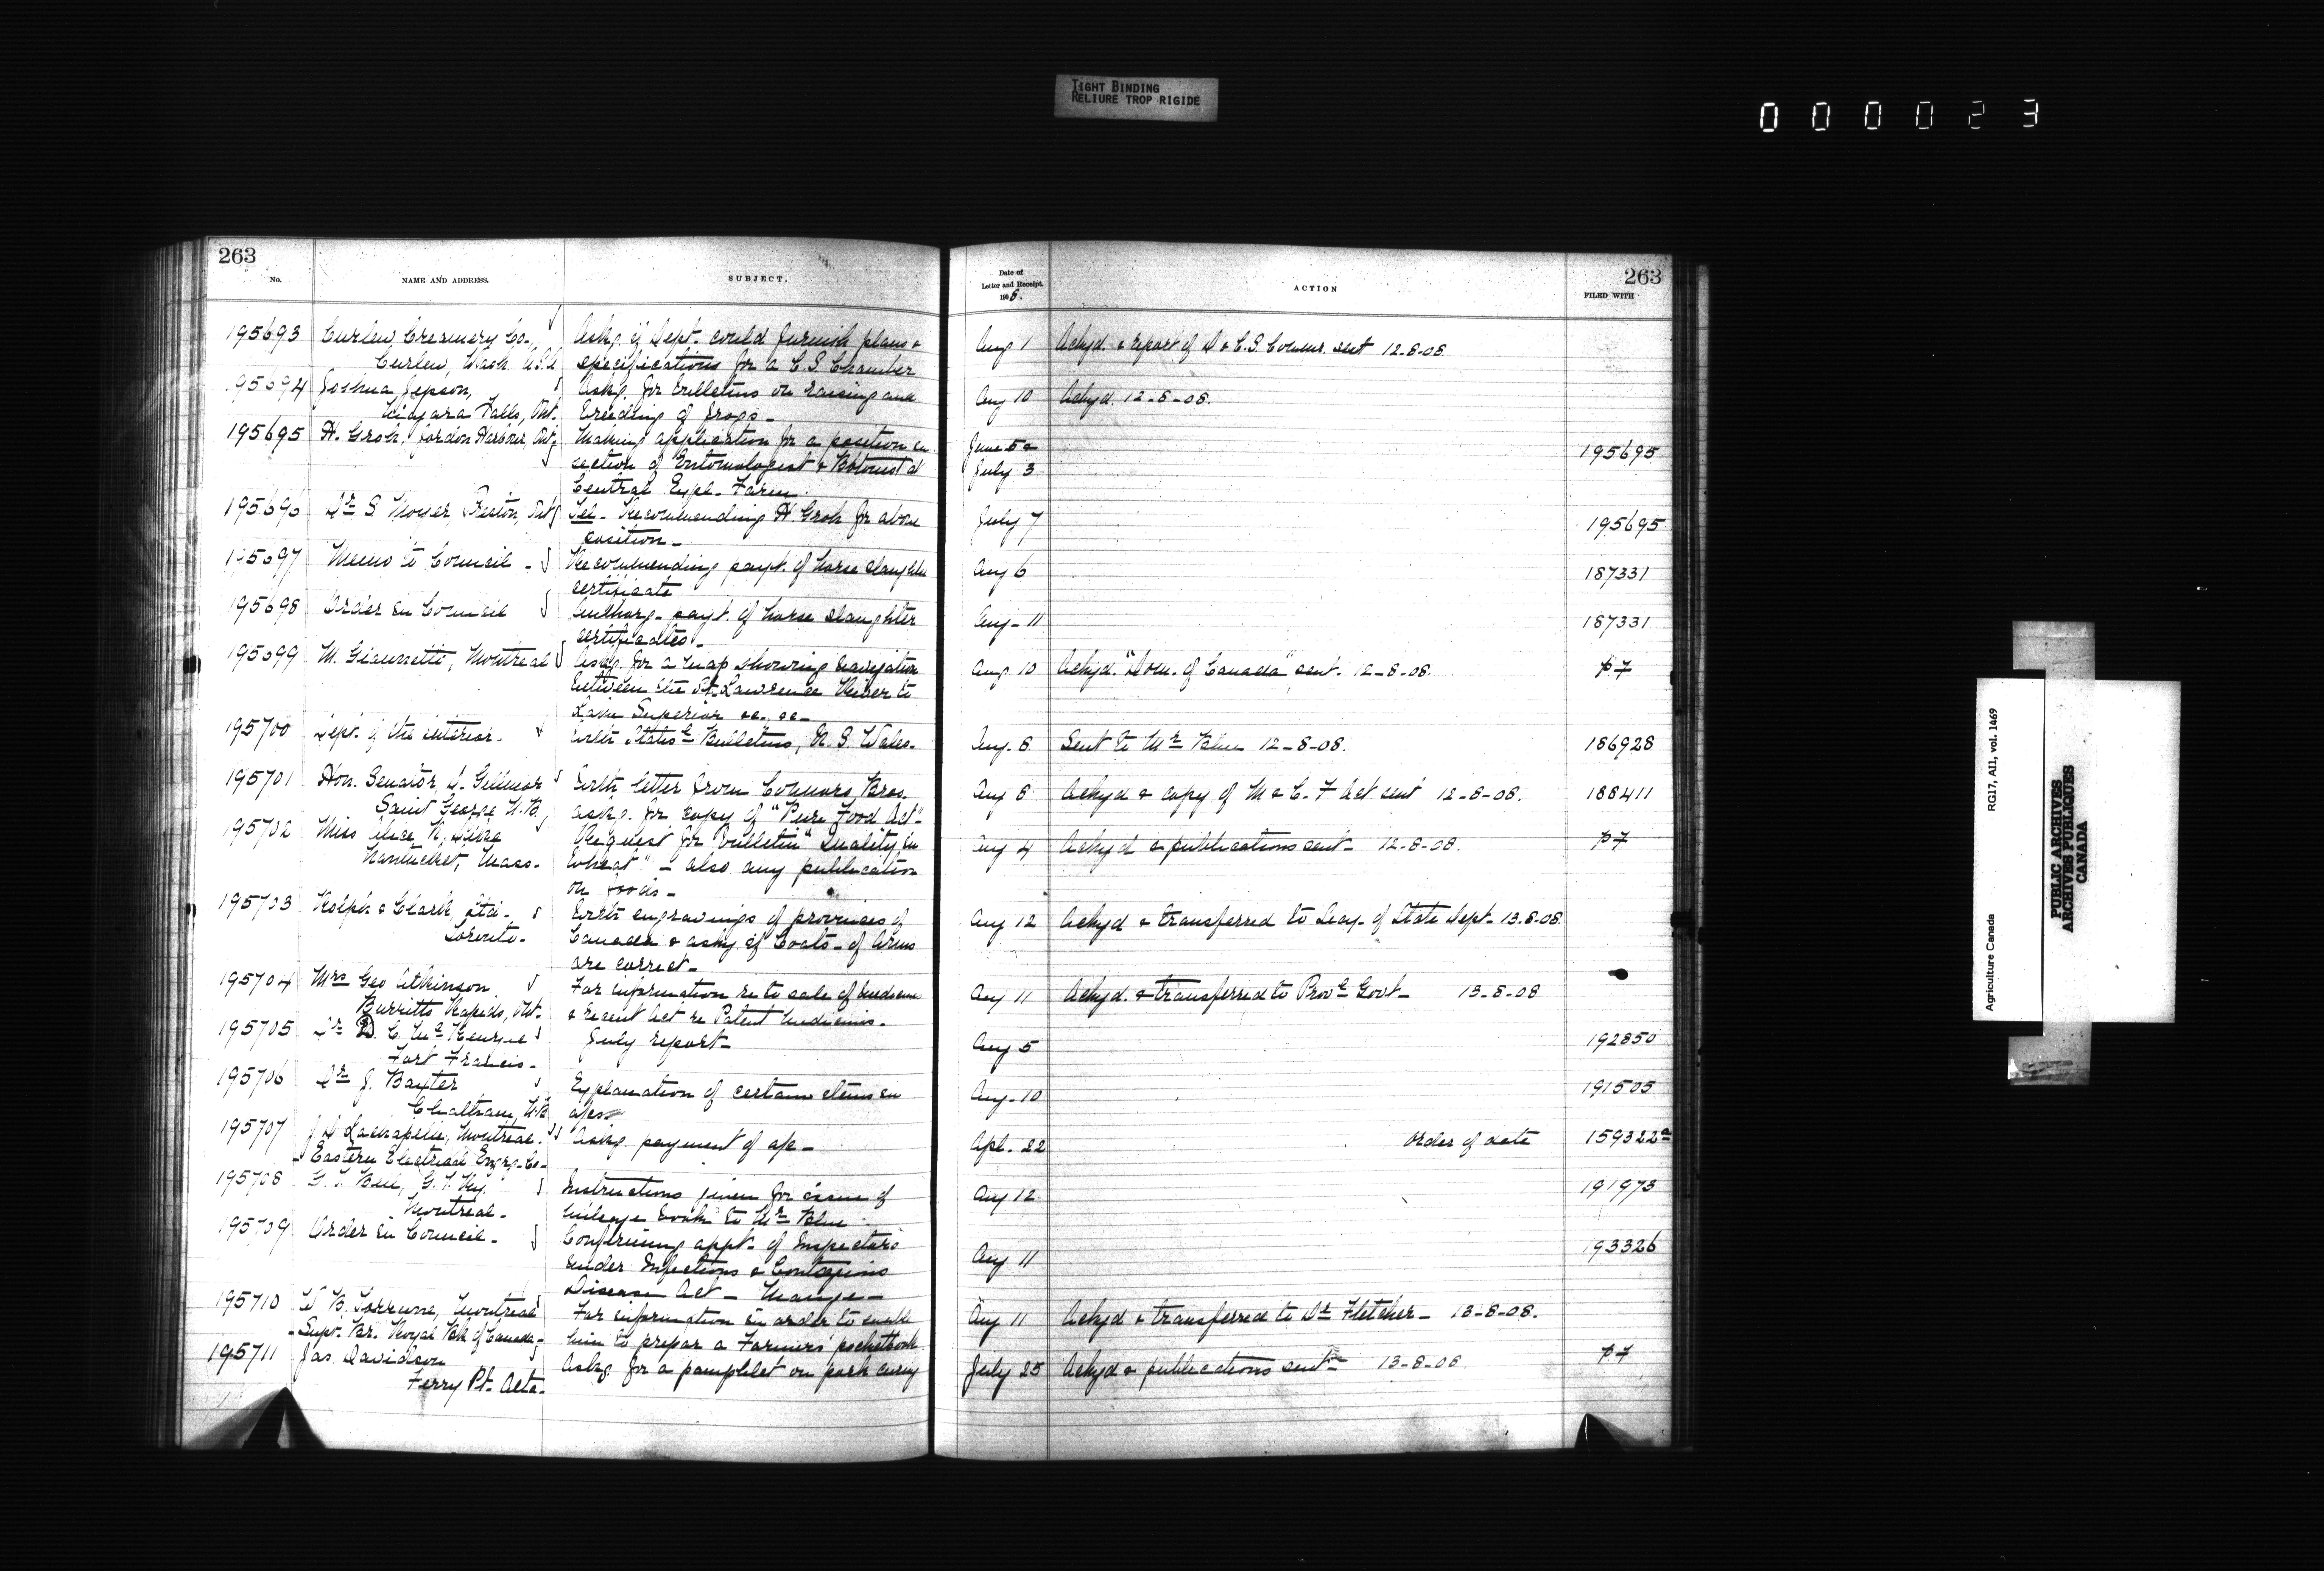 TIGHT BINDING
RELIURE TROP RIGIDE
0 0 0 0 2 3
263
No.
NAME AND ADDRESS.
SUBJECT.
Date of
Letter and Receipt.
1908.
ACTION
263
FILED WITH
195693 Curlew Creamery Co., Askg. if Dept. could furnish plans & Aug 1 Ackgd. & report of D & C.S. Commr. sent 12-8-08.
Curlew, Wash. U.S.A. specifications for a C.S. Chamber
195694 Joshua Jepson, Askg. for bulletins on raising and Aug 10 Ackgd. 12-8-08.
Niagara Falls, Ont. breeding of frogs-
195695 H. Groh, Jordon Harbour, Ont. Making application for a position in June 5 & 195695
section of Entomologist & Botanist at July 3
Central Expl. Farm.
195696 Dr S. Moyer, Preston, Ont. Tel- Recommending H. Groh for above July 7 195695
position-
195697 Memo to Council - Recommending payt. of horse slaughter Aug 6 187331
certificate
195698 Order in Council Authorg- payt. of horse slaughter Aug-11 187331
certificates.-
195699 M. Giannetti, Montreal Askg. for a map showing navigation Aug 10 Ackgd. "Dom. of Canada" sent. 12-8-08. P7
between the St. Lawrence River to
Lake Superior &c. &c-
195700 Dept. of the Interior. With Statisl Bulletins, N. S. Wales. Aug. 8 Sent to Mr Blue 12-8-08. 186928
195701 Hon. Senator D. Gillmor With letter from Connors Bros. Aug 8 Ackgd & copy of M & C. F Act sent 12-8-08. 188411
Saint George N.B. askg. for copy of "Pure Food Act"
195702 Miss Request for bulletin "Quality in Aug 4 Ackgd & publications sent- 12-8-08. P7
Nantucket, Mass- Wheat" - also any publication
on foods-
195703 Rolph & Clark, Ltd- With engravings of provinces of Aug 12 Ackgd & transferred to Secy. of State Dept- 13-8-08.
Toronto- Canada & askg if Coats-of Arms
are correct-
195704 Mrs Geo Atkinson For information re to sale of medicine Aug 11 Ackgd. & transferred to Provl Govt- 13-8-08
Burritts Rapids, Ont- & recent Act re Patent medicines-
195705 Dr D. C. July report- Aug 5 192850
Fort Francis-
195706 Dr J. Baxter Explanation of certain items in Aug-10 191505
Chatham, N.B.
195707 Lachapelle, Montreal. Askg. payment of a/c- Apl-22 order of date 159322a
-Eastern Electrical Engrg-Co-
195708 G. T. Bell, G.T.Ry. Instructions given for issue of Aug 12 191973
Montreal- mileage book to Mr Blue
195709 Order in Council- Confirming appt- of Inspectors Aug 11 193326
under Infectious & Contagious
Disease Act - Mange-
195710 Montreal For information in order to enable Aug 11 Ackgd & transferred to Dr Fletcher- 13-8-08.
-Supt. Br. Royal Bk of Canada- him to prepar a Farmers' pocketbook
195711 Jas. Davidson Askg. for a pamphlet on pork curing July 25 Ackgd & publications sent- 13-8-08 P7
Ferry Pt. Alta-
Agriculture Canada RG17, AII, vol. 1469
PUBLIC ARCHIVES
ARCHIVES PUBLIQUES
CANADA